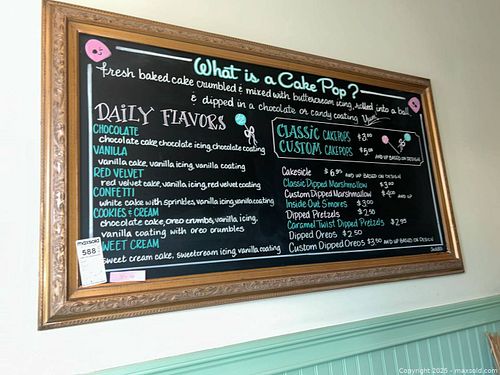 What is a Cake Pop?
fresh baked cake crumbled & mixed with buttercream icing, rolled into a ball,
& dipped in a chocolate or candy coating Yum!
DAILY FLAVORS
CHOCOLATE
chocolate cake, chocolate icing, chocolate coating
VANILLA
vanilla cake, vanilla icing, vanilla coating
RED VELVET
red velvet cake, vanilla icing, red velvet coating
CONFETTI
white cake with sprinkles, vanilla icing, vanilla coating
COOKIES & CREAM
chocolate cake, oreo crumbs, vanilla icing,
vanilla coating with oreo crumbles
SWEET CREAM
sweet cream cake, sweetcream icing, vanilla coating
CLASSIC CAKEPOPS
CUSTOM CAKEPOPS
AND UP BASED ON DESIGN
Cakesicle $6.95 AND UP BASED ON DESIGN
Classic Dipped Marshmallow $3.00
Custom Dipped Marshmallow AND UP
Inside Out S'mores $3.00
Dipped Pretzels $2.50
Caramel Twist Dipped Pretzels $2.95
Dipped Oreos $2.50
Custom Dipped Oreos $3.50 AND UP BASED ON DESIGN
maxsold
588
Copyright 2025 - maxsold.com